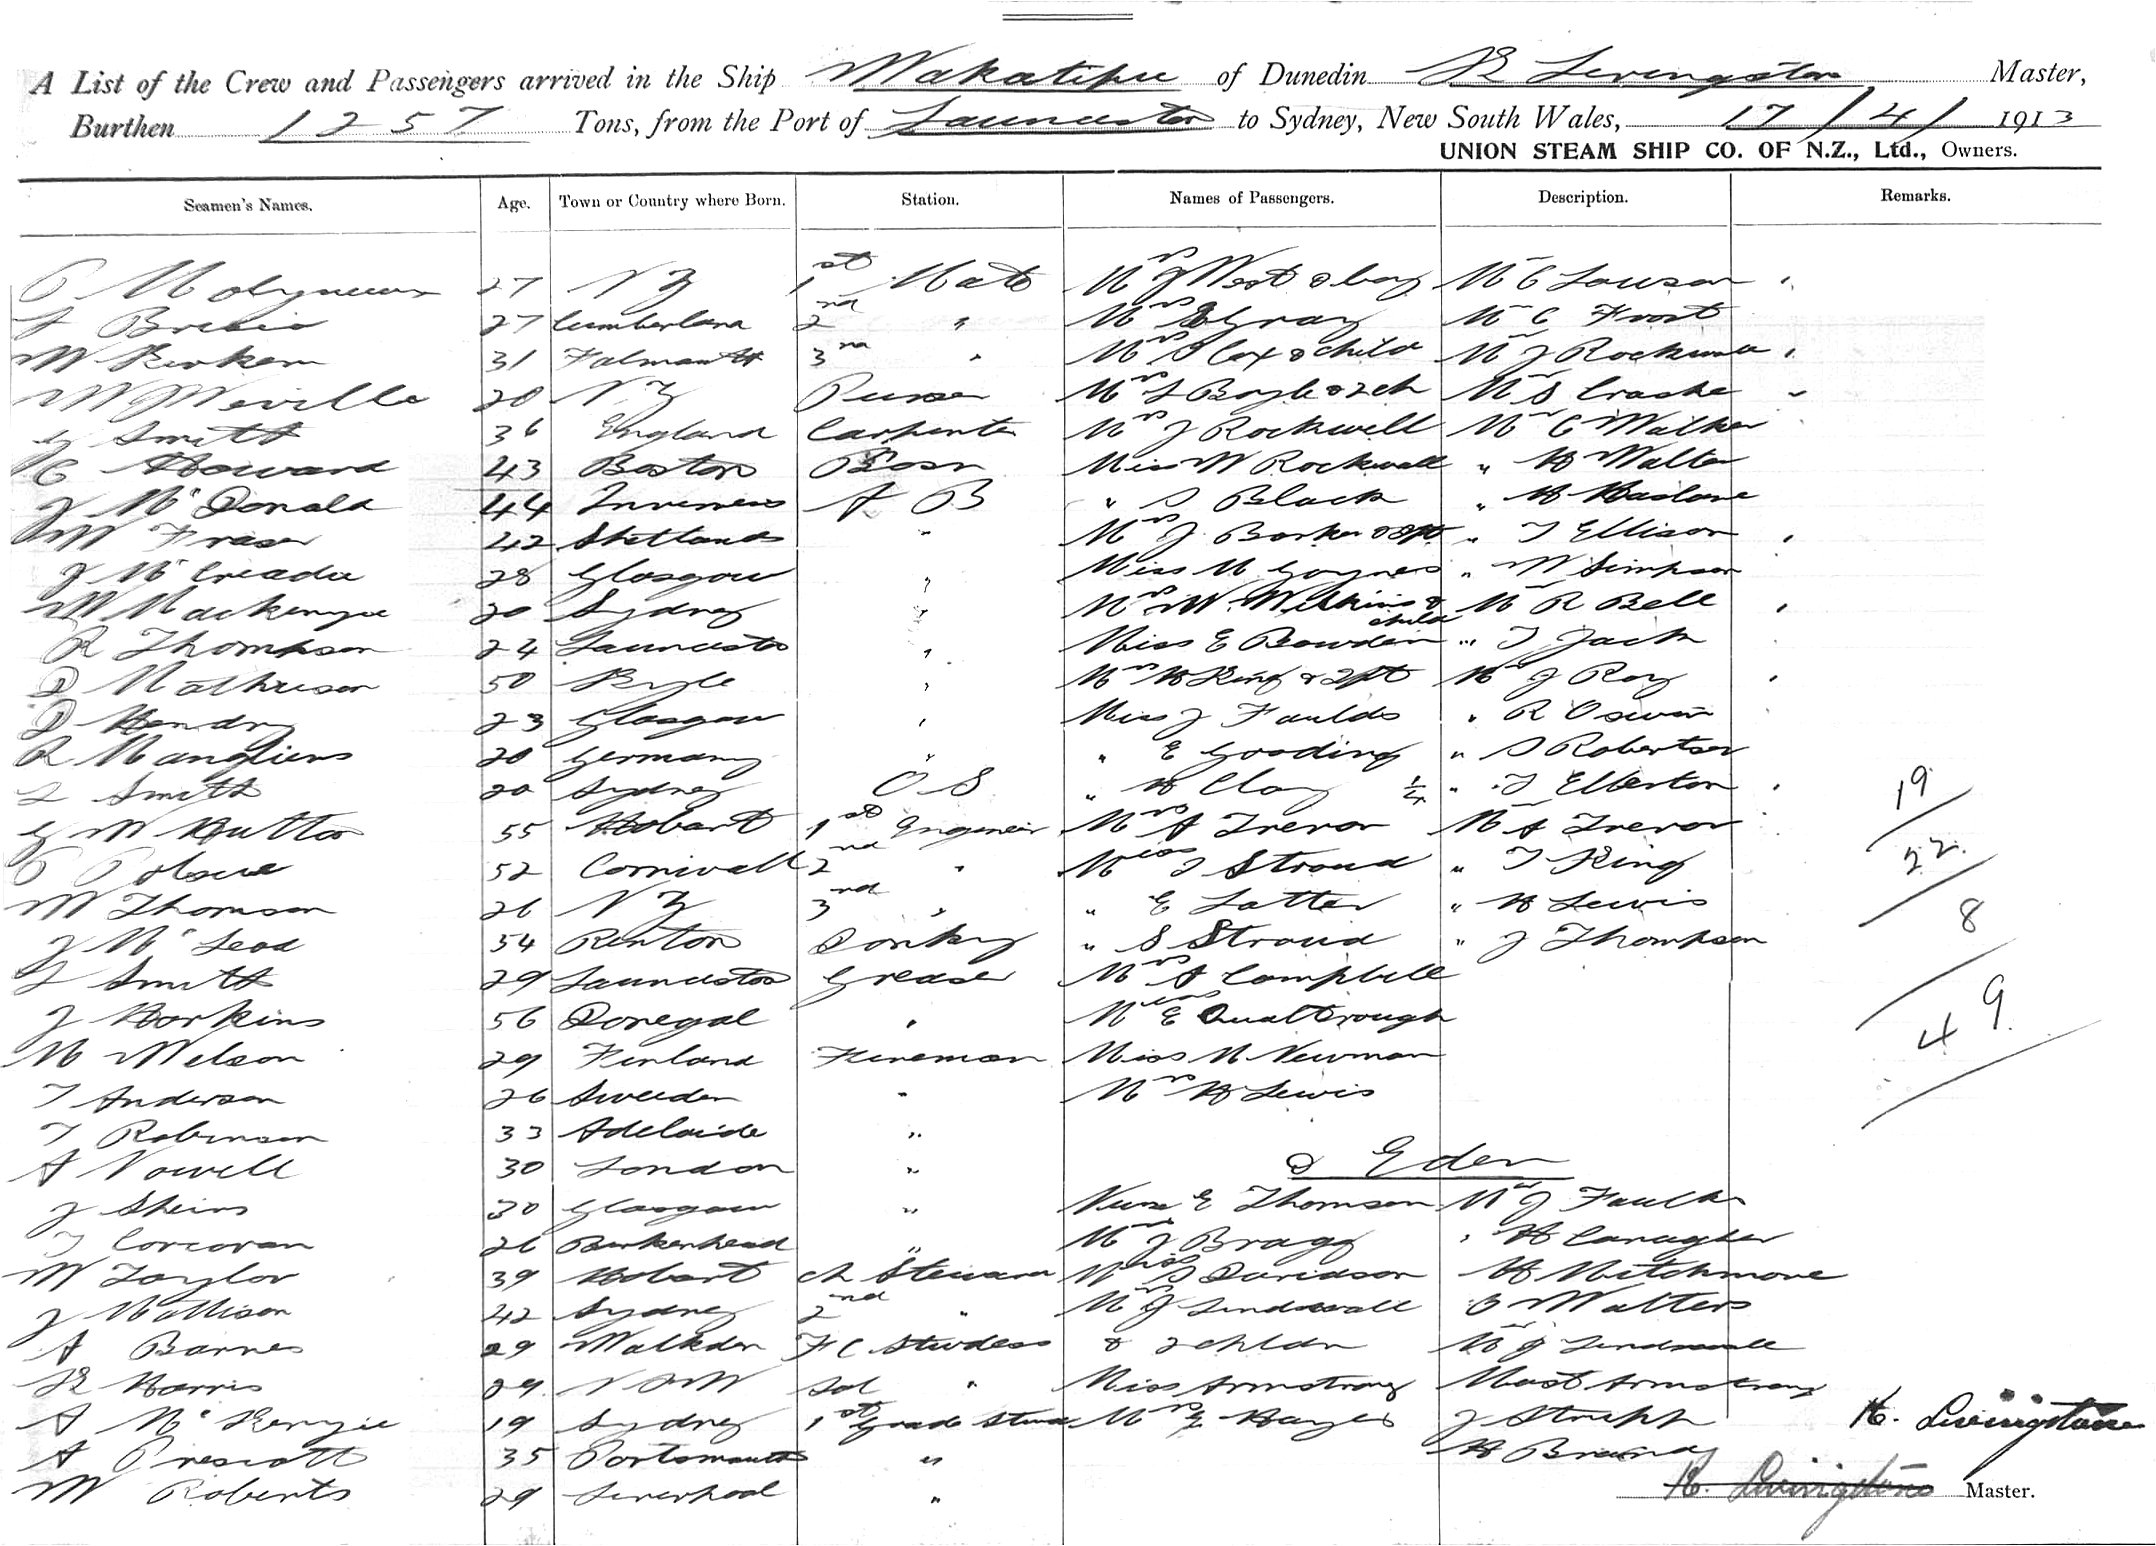 A List of the Crew and Passengers arrived in the Ship Wakatipu of Dunedin Livingston Master,
Burthen 1257 Tons, from the Port of Launceston to Sydney, New South Wales, 17/4/1913
UNION STEAM SHIP CO. OF N.Z., Ltd., Owners.
Seamen's Names. Age. Town or Country where Born. Station. Names of Passengers. Description. Remarks.
27 N Z 1st Mate Mrs J West & boy Mr C Lawson
27 Cumberland 2nd " Mrs Gray Mr C Frost
W 31 Falmouth 3rd " Mrs Cox & child Mr J
W 20 N Z Purser Mrs L Boyle & 2 ch Mr S
G Smith 36 England Carpenter Mrs J Rockwell Mr C Walker
C Howard 43 Boston Bosn Miss W Rockwell " H Walter
J McDonald 44 Inverness A B " S Black " H Haslone
W Fraser 42 Shetlands " Mrs J Barker & " T Ellison
J McCreadie 28 Glasgow " Miss M " W Simpson
W Mackenzie 20 Sydney " Mrs W Wilkins & child Mr R Bell
R Thompson 24 Launceston " Miss E Bowden " T Jack
D Mathieson 50 " Mrs H King & 2 Mr J Roy
D Hendry 23 Glasgow " Miss J Faulds " R
R 20 Germany " " E Gooding " S Robertson
L Smith 20 Sydney O S " H Clay " T Elberton
G W Hutton 55 Hobart 1st Engineer Mrs A Trevor Mr A Trevor
19
P Polsue 52 Cornwall 2nd " Miss J Stroud " T King
22
W Thomson 26 N Z 3rd " " E Latter " H Lewis
8
J McLeod 54 Renton Donky " S Stroud " J Thompson
L Smith 29 Launceston Greaser Mrs A Campbell
J Harkins 56 Donegal " Miss E Qualtrough
49
M Nelson 29 Finland Fireman Miss M Newman
T Anderson 26 Sweden " Mrs H Lewis
T Robinson 33 Adelaide "
A Vowell 30 London " & Eden
J 30 Glasgow " Nurse E Thomson Mr J
T Corcoran 26 Birkenhead " Mrs J Bragg " H
W Taylor 39 Hobart Ch Steward Miss S Davidson H Mitchmore
J Mollison 42 Sydney 2nd " Mrs J Lindwall C Walters
A Barnes 29 Walkden F C Stwdess & 2 chldn Mr J Lindwall
Harris 29 N S W " Miss Armstrong Mast Armstrong
A McKenzie 19 Sydney 1st Grade Mrs E Hayes J H. Livingstone
A Prescott 35 Portsmouth " H
W Roberts 29 Liverpool " H. Livingstone Master.